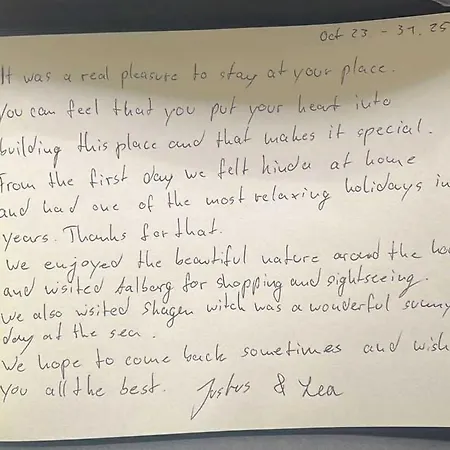 Oct 23 - 31. 25
It was a real pleasure to stay at your place.
You can feel that you put your heart into
building this place and that makes it special.
From the first day we felt kinda at home
and had one of the most relaxing holidays in
years. Thanks for that.
We enjoyed the beautiful nature around the ho
and visited Aalborg for shopping and sightseeing.
We also visited Skagen witch was a wonderful sunny
day at the sea.
We hope to come back sometimes and wish
you all the best. Justus & Lea